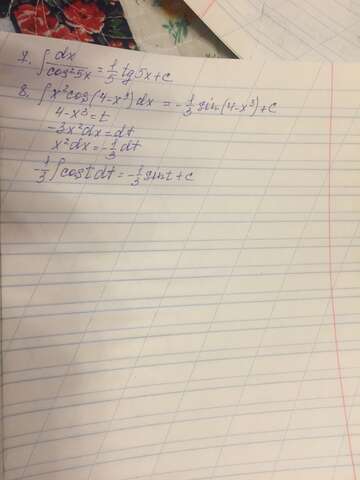 7. ∫ dx/cos²5x = 1/5 tg5x+c
8. ∫x²cos(4-x³)dx = -1/3 sin(4-x³)+c
4-x³=t
-3x²dx=dt
x²dx=-1/3 dt
-1/3 ∫cost dt=-1/3 sint+c